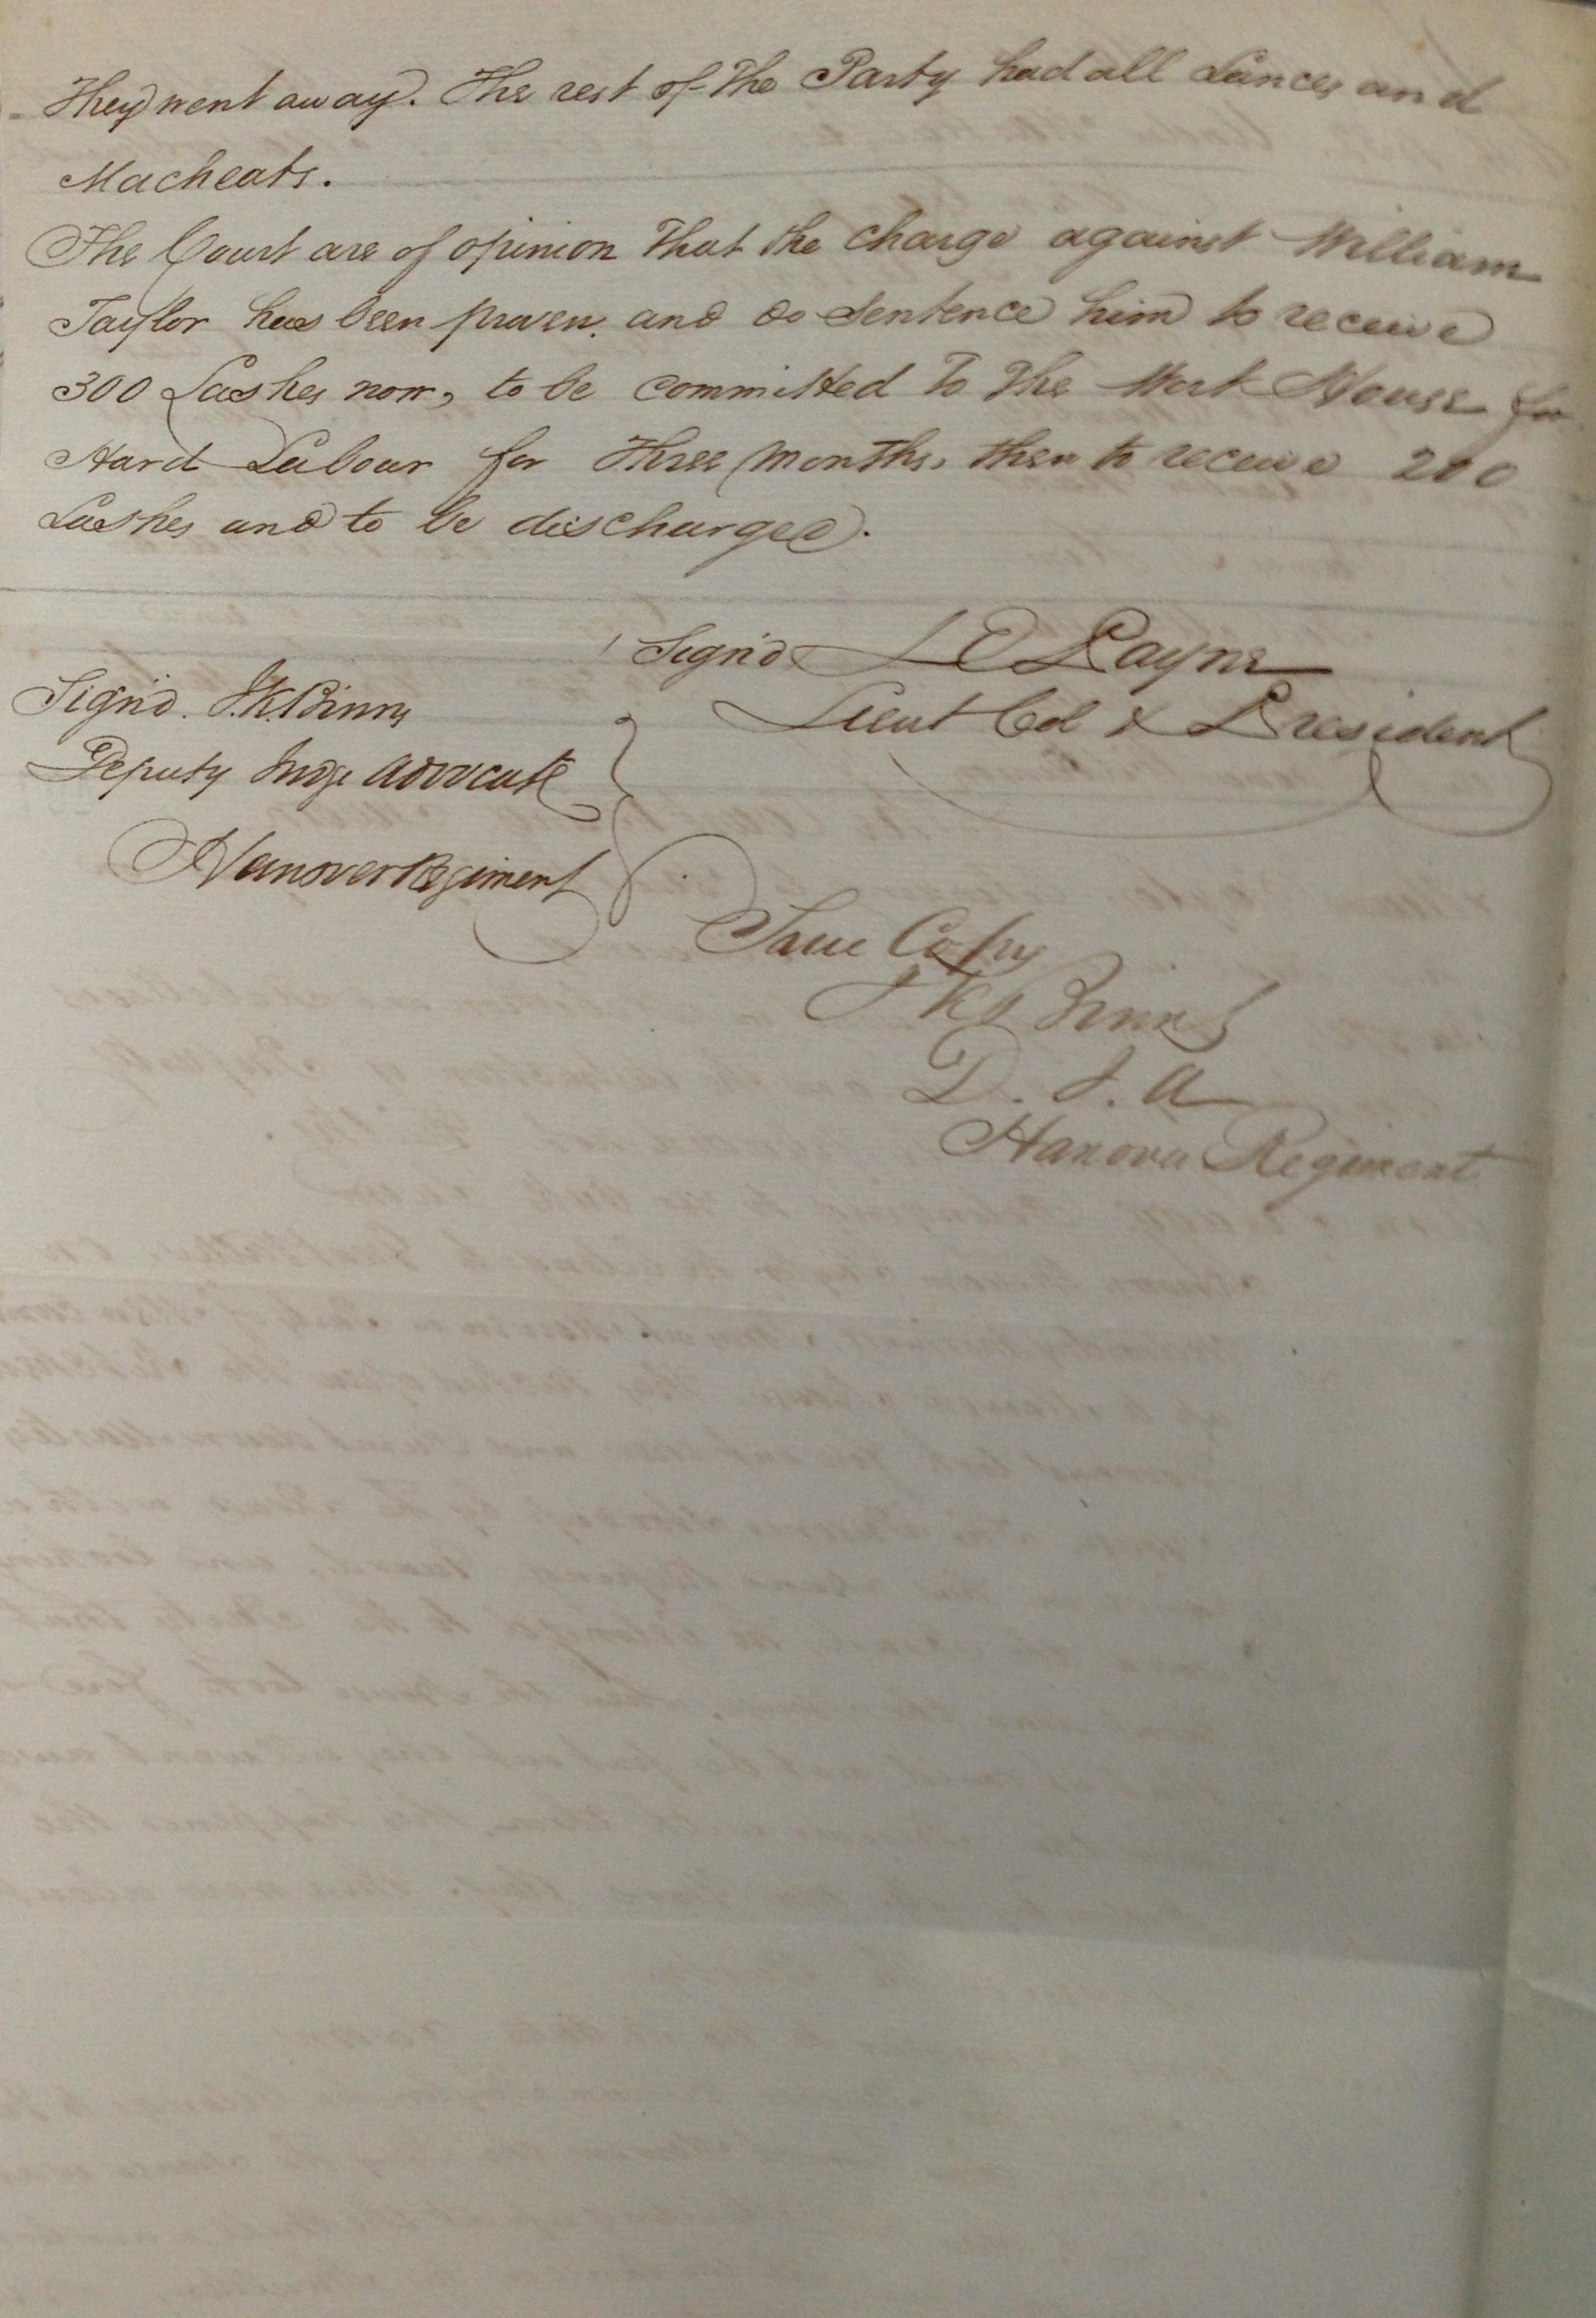 They went away. The rest of the Party had all Lances and
Macheats.
The Court are of opinion That the Charge against William
Taylor has been proven. and do Sentence him to receive
300 Lashes now, to be Committed To The Work House for
Hard Labour for Three Months, then to receive 200
Lashes and to be discharged.
Sign'd J C Payne
Lieut Col & President
Sign'd. J. K. Binns
Deputy Judge Advocate
Hanover Regiment
True Copy
J K Binns
D. J. A
Hanover Regiment